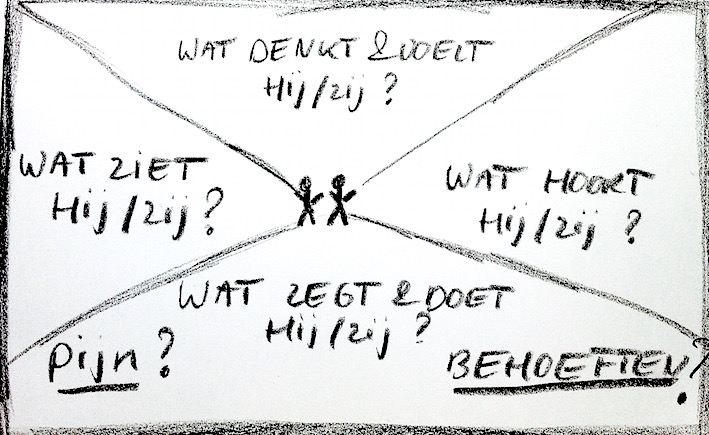 WAT DENKT & VOELT
Hij/zij ?
WAT ZIET
Hij/zij ?
WAT HOORT
Hij/zij ?
WAT ZEGT & DOET
Hij/zij ?
pijn ?
BEHOEFTEN?